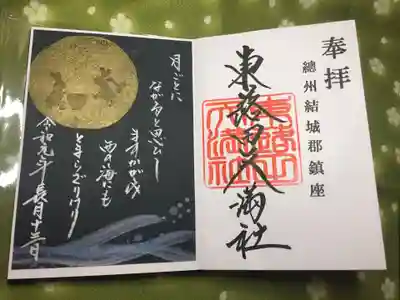 奉拝
總州結城郡鎮座
東蕗田天満社
東蕗田
天満社
月ごとに
ながると思ひし
ますかがみ
西の海にも
とまらざりけり
令和元年 長月十三日